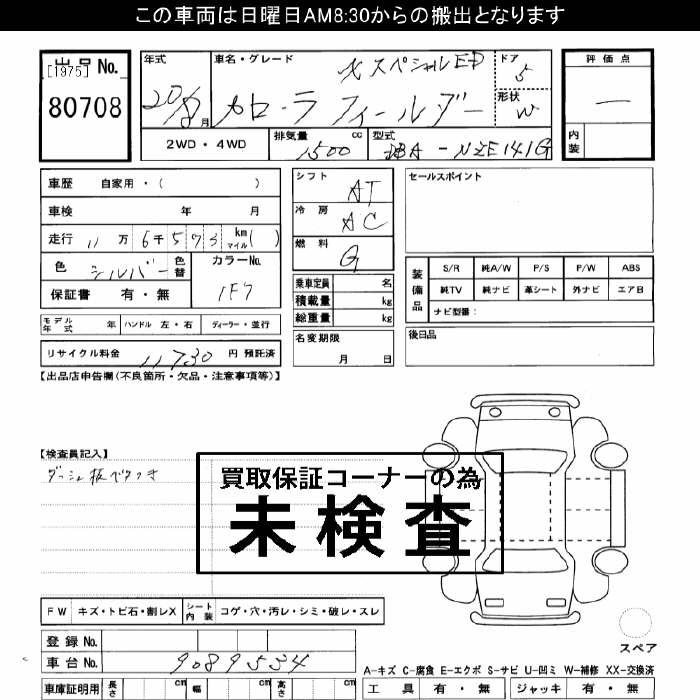 この車両は日曜日AM8:30からの搬出となります
出品No.
[1975]
80708
年式
20/8月
車名・グレード
XスペシャルED
カローラフィールダー
ドア
5
形状
W
2WD・4WD
排気量 cc
1500
型式
DBA-NZE141G
評価点
―
内装
車歴 自家用・( )
車検 年 月
走行 11万6千573 km マイル( )
色
シルバー
色替
カラーNo.
1F7
保証書 有・無
モデル年式 年
ハンドル 左・右
ディーラー・並行
リサイクル料金 11730 円 預託済
シフト
AT
冷房
AC
燃料
G
乗車定員 名
積載量 kg
総重量 kg
名変期限
月 日
セールスポイント
装備品
S/R 純A/W P/S P/W ABS
純TV 純ナビ 革シート 外ナビ エアB
ナビ型番:
後日品
【出品店申告欄(不良箇所・欠品・注意事項等)】
【検査員記入】
ダッシュ板ベタつき
買取保証コーナーの為
未検査
FW キズ・トビ石・割レX
シート内装 コゲ・穴・汚レ・シミ・破レ・スレ
登録No.
車台No. 9089534
車庫証明用 長さ cm 幅 cm 高さ cm
スペア
A-キズ C-腐食 E-エクボ S-サビ U-凹ミ W-補修 XX-交換済
工具 有・無 ジャッキ 有・無